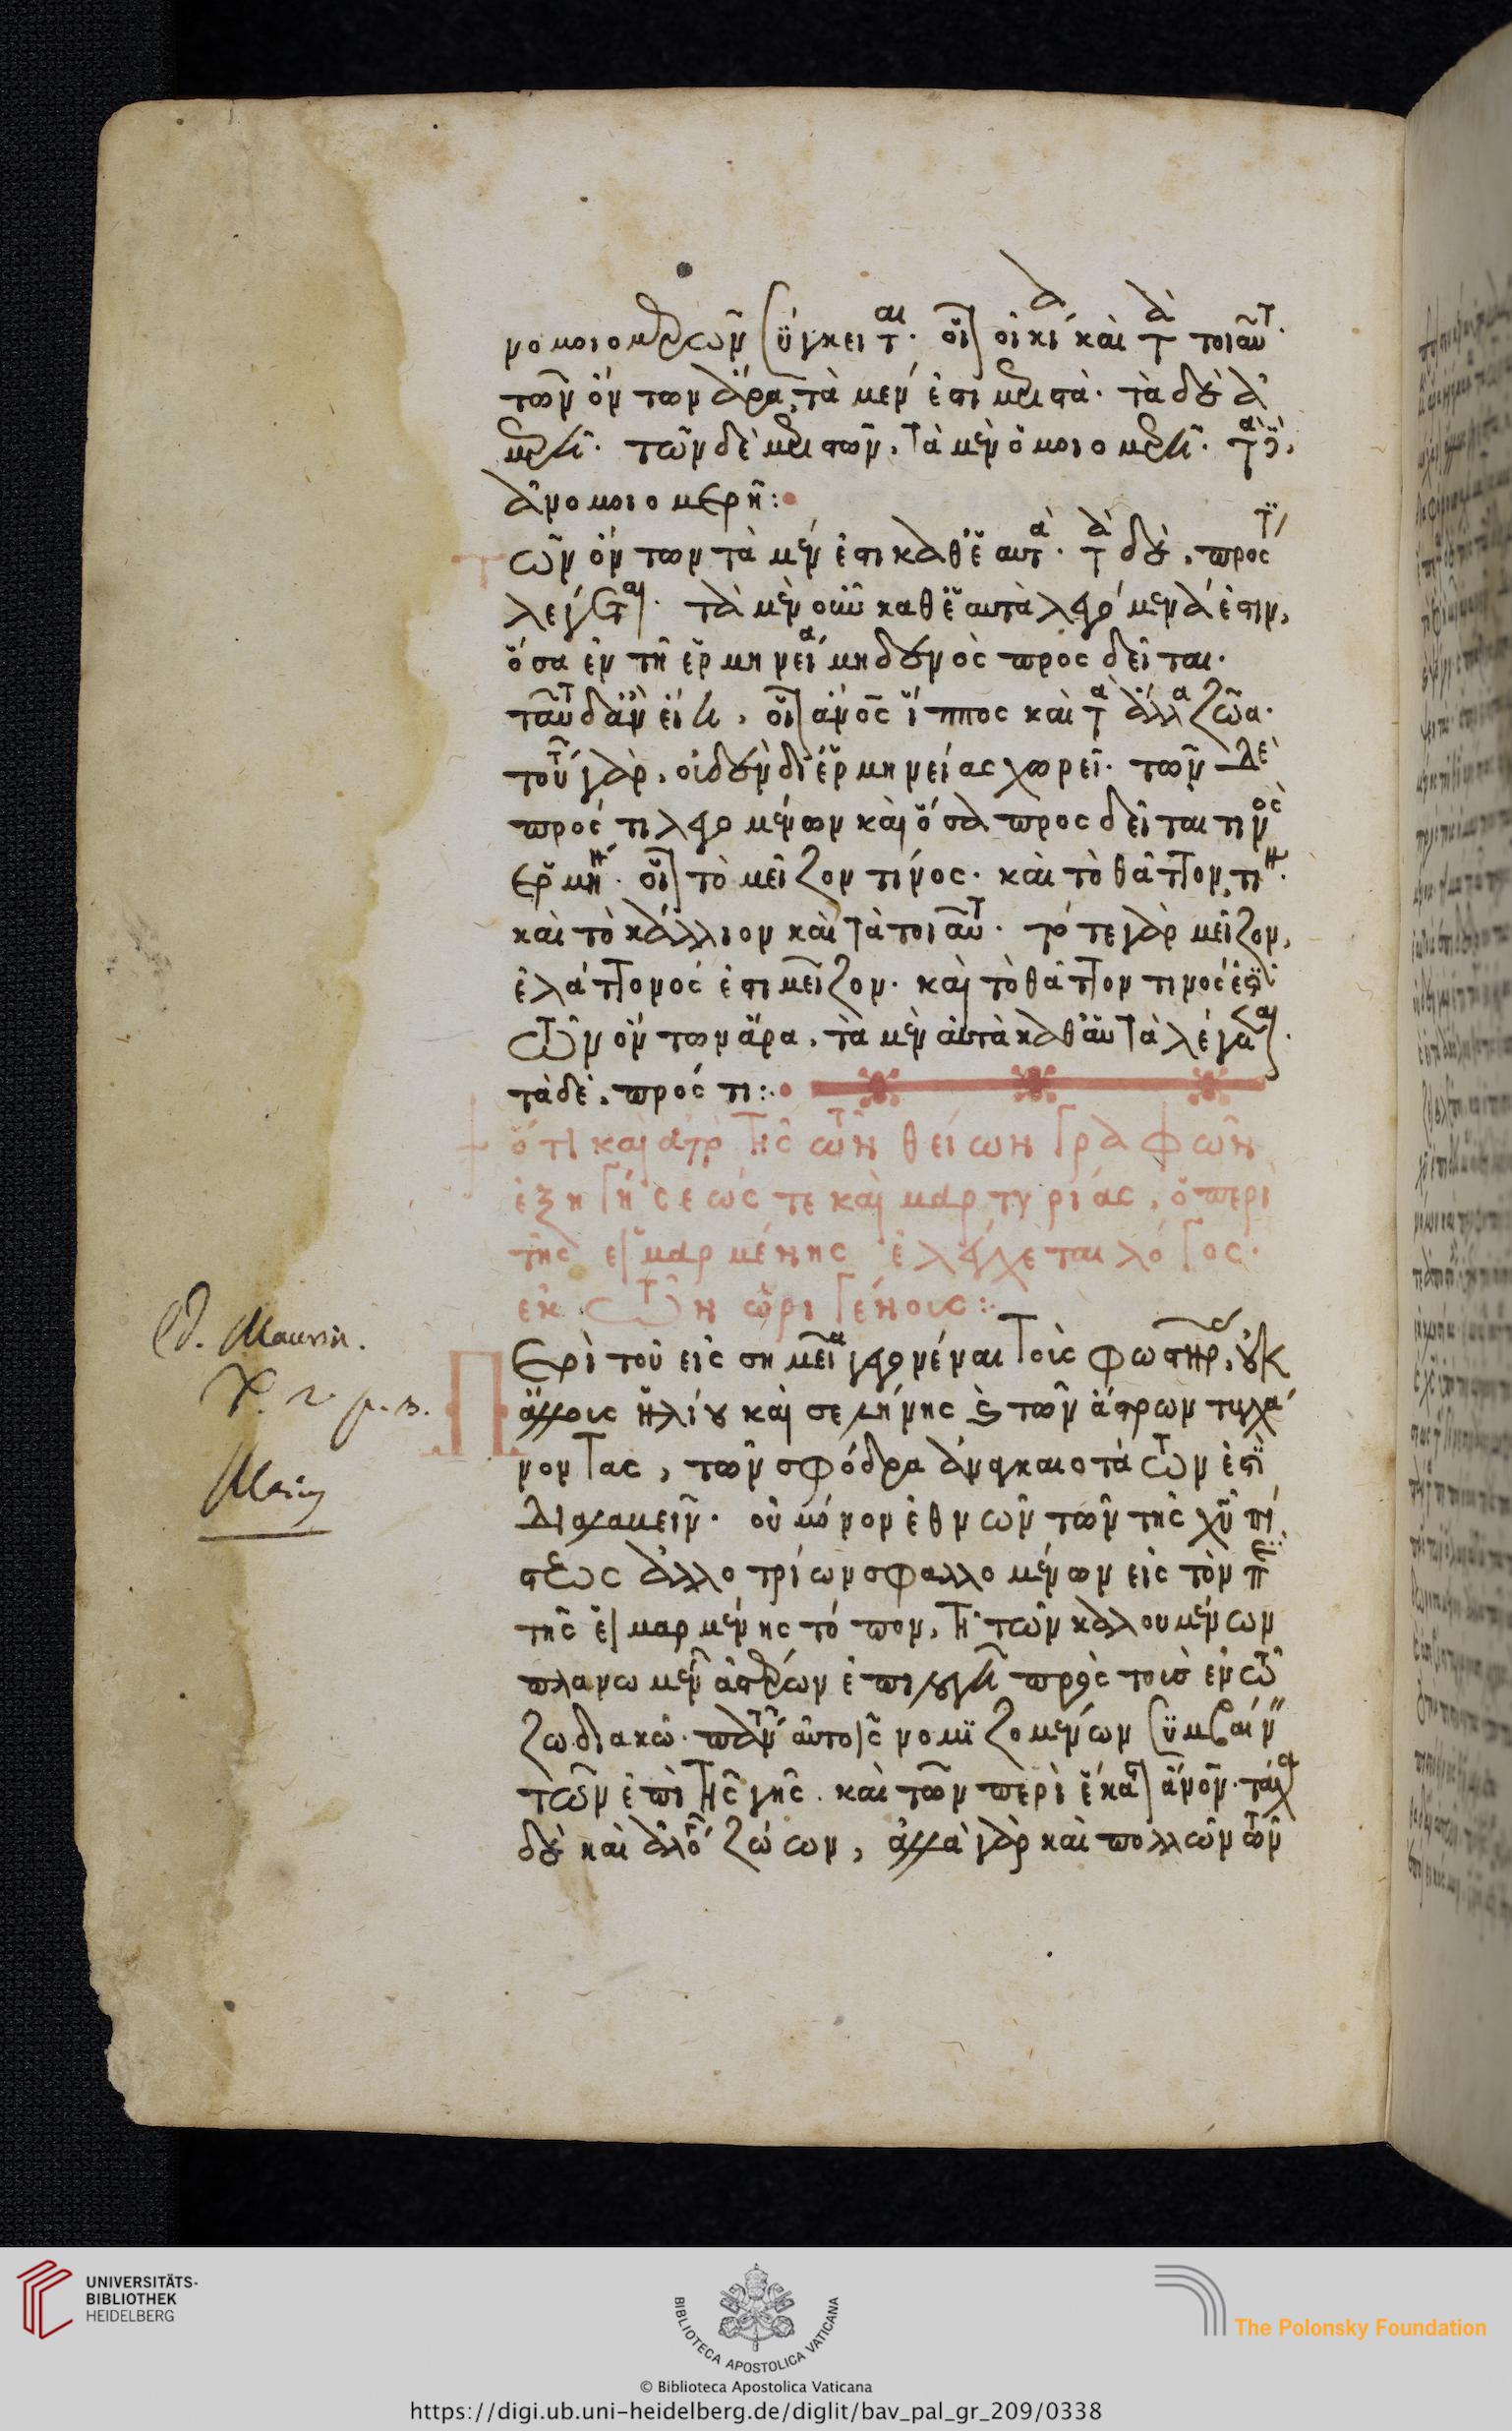 νομοιομερῶν σύγκειται. οἷον οἰκία καὶ τὰ τοιαῦτ.
τῶν ὄντων ἄρα, τὰ μέν ἐστι μεριστὰ. τὰ δὲ ἀ
μερῆ. τῶν δὲ μεριστῶν, τὰ μὲν ὁμοιομερῆ. τὰ δὲ,
ἀνομοιομερῆ:
Τῶν ὄντων τὰ μέν ἐστι καθ' ἑαυτὰ. τὰ δὲ, πρός τι
λέγεται. τὰ μὲν οὖν καθ' ἑαυτὰ λεγόμενά ἐστιν,
ὅσα ἐν τῇ ἑρμηνείᾳ μηδενὸς προσδεῖται.
ταῦτα δ' ἂν εἴη, οἷον ἄνος ἵππος καὶ τὰ ἄλλα ζῶα.
τούτων γὰρ, οὐδὲν δι' ἑρμηνείας χωρεῖ. τῶν δὲ
πρός τι λεγομένων καὶ ὅσα προσδεῖται τινὸς
ἑρμη. οἷον τὸ μεῖζον τινός. καὶ τὸ θᾶττον, τι.
καὶ τὸ κάλλιον καὶ τὰ τοιαῦτ. τό τε γὰρ μεῖζον,
ἐλάττονός ἐστι μεῖζον. καὶ τὸ θᾶττον τινός ἐστι
τῶν ὄντων ἄρα, τὰ μὲν αὐτὰ καθ' αὑτὰ λέγεται.
τὰ δὲ, πρός τι:
ὅτι καὶ ἀπὸ τῆς τῶν θείων γραφῶν
ἐξηγήσεώς τε καὶ μαρτυρίας, ὁ περὶ
τῆς εἱμαρμένης ἐλέγχεται λόγος.
ἐκ τῶν ὠριγένους:
Περὶ τοῦ εἰς σημεῖα γεγονέναι τοὺς φωστῆρ, οὐκ
ἄλλους ἡλίου καὶ σελήνης καὶ τῶν ἄστρων τυγχά
νοντας, τῶν σφόδρα ἀναγκαιοτάτων ἐστὶ
διαλαμεῖν. οὐ μόνον ἐθνῶν τῶν τῆς χῦ πί
στεως ἀλλοτρίων σφαλλομένων εἰς τὸν περὶ
τῆς εἱμαρμένης τόπον, τῇ τῶν καλουμένων
πλανωμένων ἀστέρων ἐπιπλοκῇ πρὸς τοὺς ἐν τῶ
ζωδιακῶ. πάντων αὐτοῖς νομιζομένων συμβαίν
τῶν ἐπὶ τῆς γῆς. καὶ τῶν περὶ ἕκαστον ἄνον. τάχα
δὲ καὶ ἀλόγων ζώων, ἀλλὰ γὰρ καὶ πολλῶν τῶν
Ed. Maurin.
UNIVERSITÄTS-
BIBLIOTHEK
HEIDELBERG
BIBLIOTECA APOSTOLICA VATICANA
© Biblioteca Apostolica Vaticana
The Polonsky Foundation
https://digi.ub.uni-heidelberg.de/diglit/bav_pal_gr_209/0338